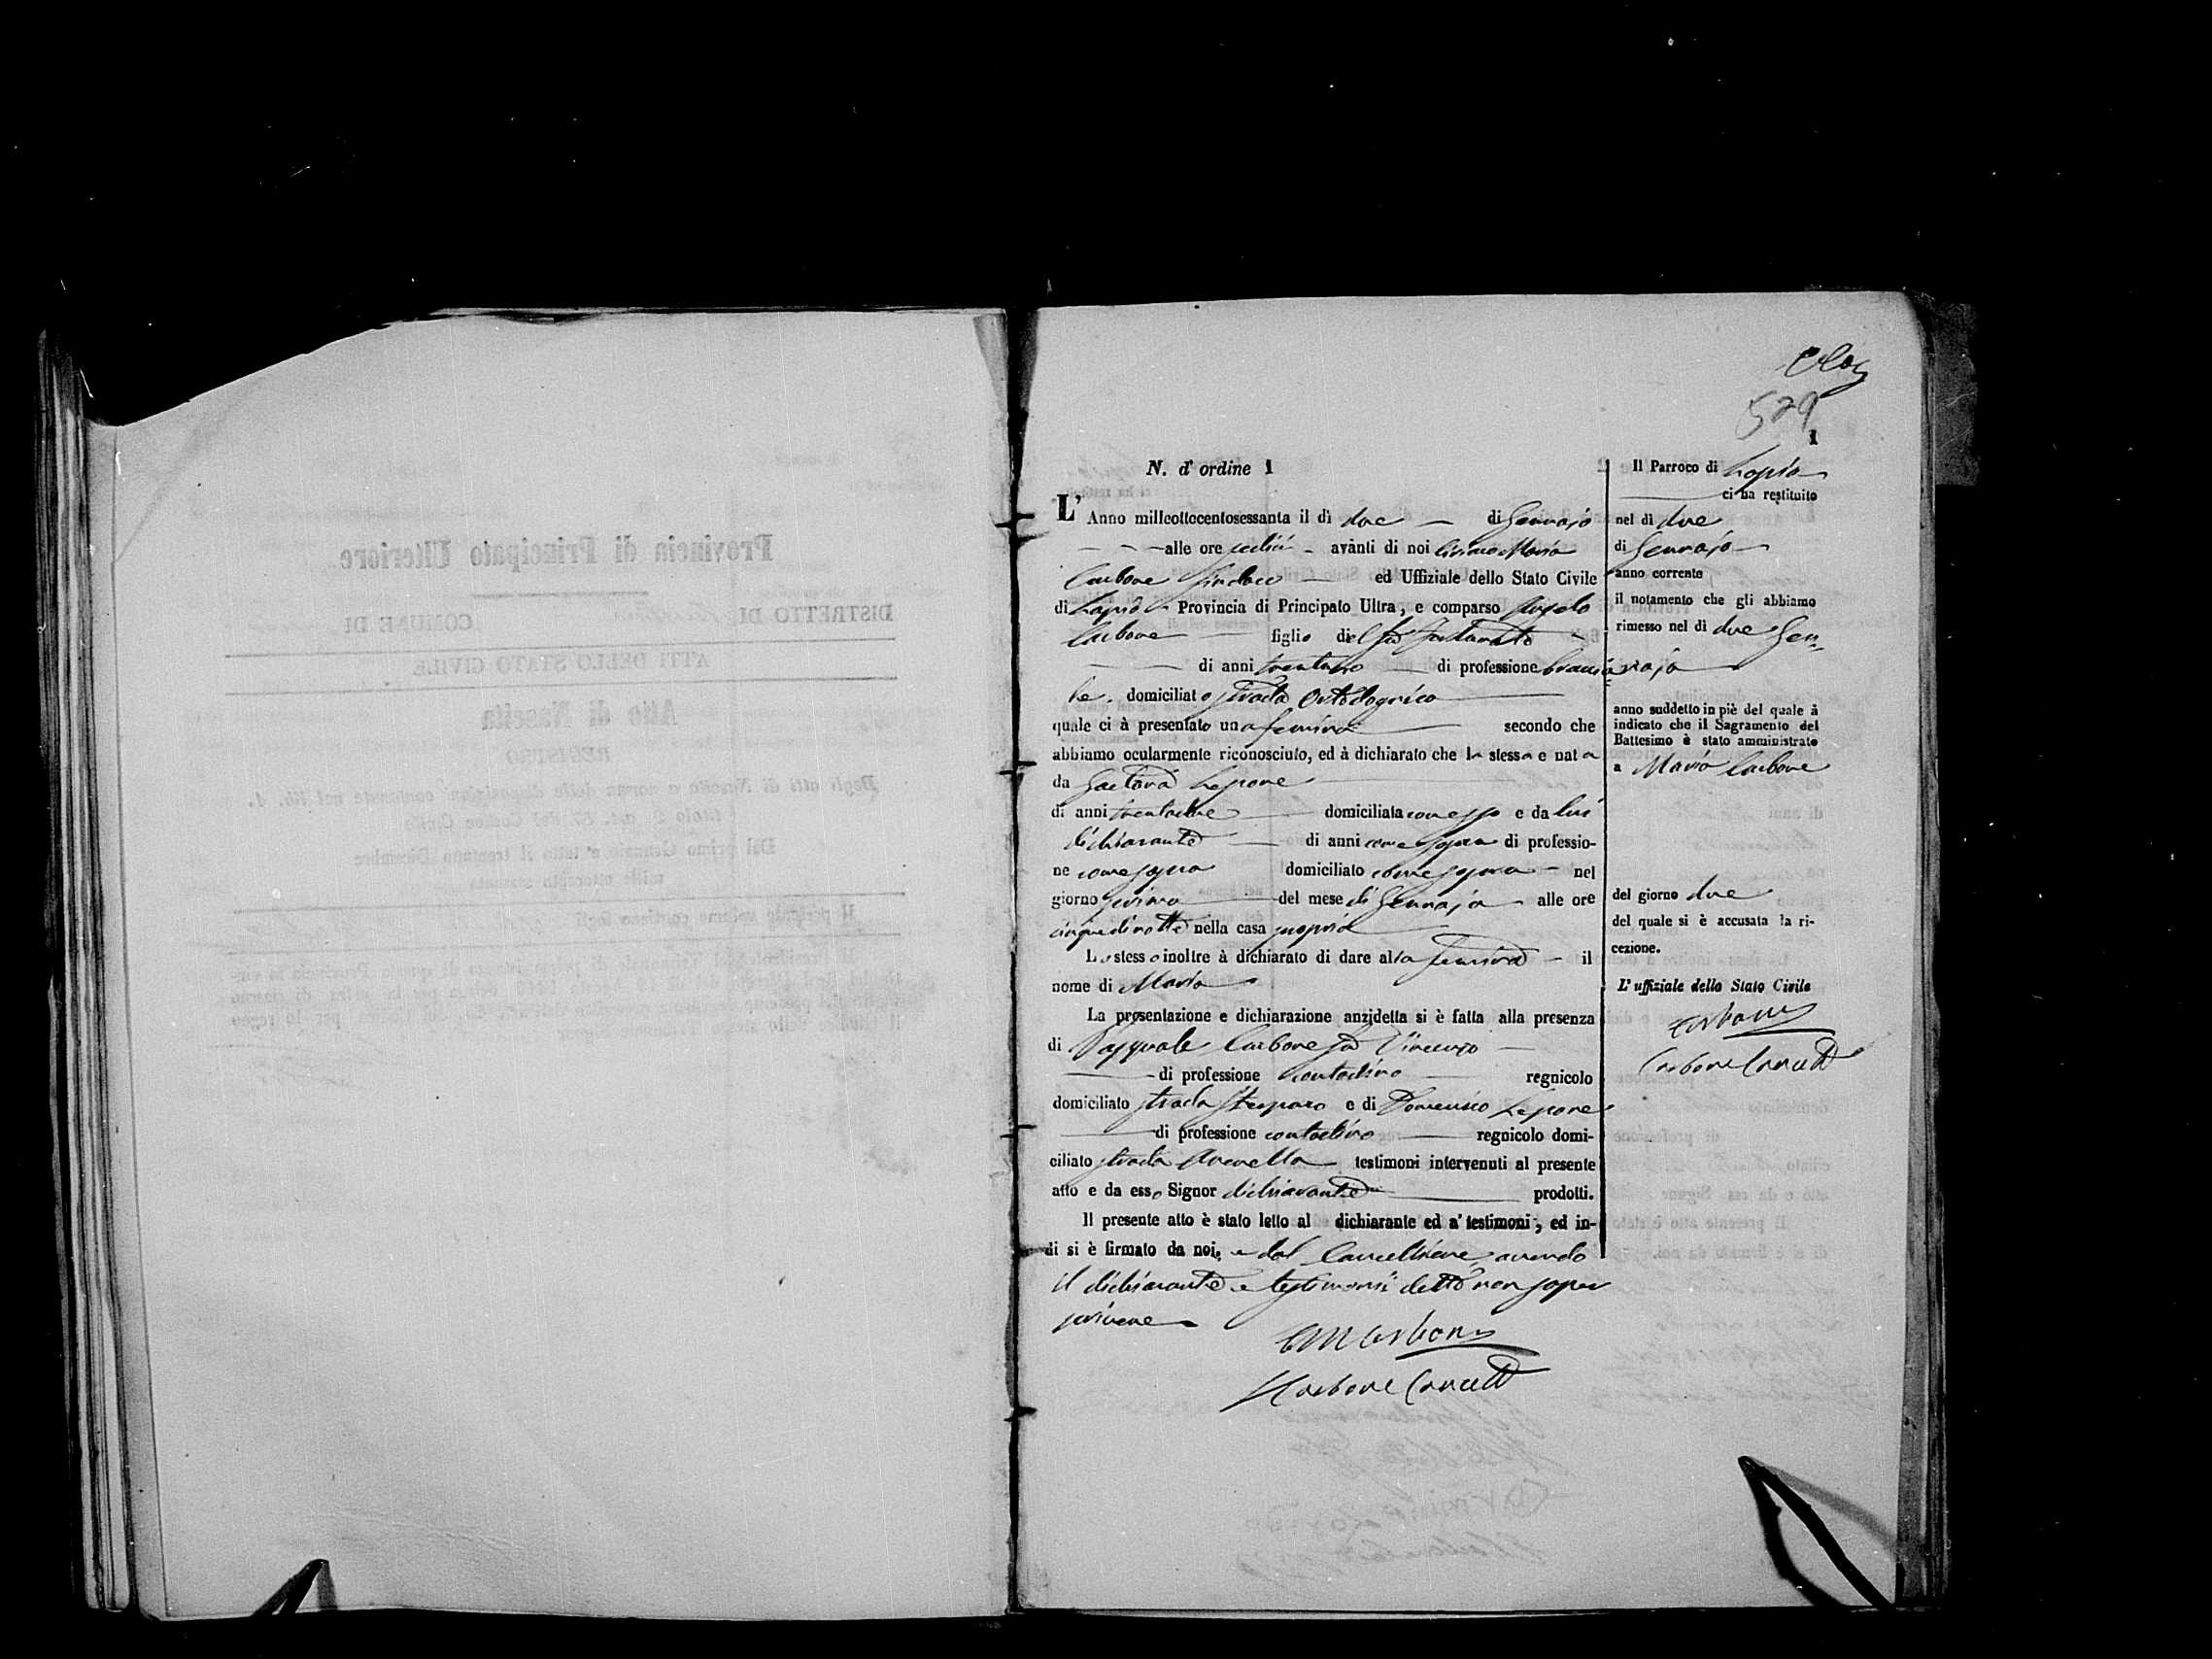 529
1
N. d' ordine 1
L' Anno milleottocentosessanta il dì due di Gennajo
alle ore sedici avanti di noi Ciriaco Maria
Carbone Sindaco ed Uffiziale dello Stato Civile
di Lapio Provincia di Principato Ultra, e comparso Angelo
Carbone figlio del fu Fortunato
di anni di professione braccia
le domiciliato strada
quale ci à presentato una femina secondo che
abbiamo ocularmente riconosciuto, ed à dichiarato che la stessa e nata
da Gaetana Lepore
di anni trentadue domiciliata con esso e da lui
dichiarante di anni come sopra di professio-
ne come sopra domiciliato come sopra nel
giorno primo del mese di Gennajo alle ore
cinque di notte nella casa propria
Lo stesso inoltre à dichiarato di dare alla femina il
nome di Maria
La presentazione e dichiarazione anzidetta si è fatta alla presenza
di Pasquale Carbone fu Vincenzo
di professione contadino regnicolo
domiciliato strada e di Domenico Lepore
di professione contadino regnicolo domi-
ciliato strada testimoni intervenuti al presente
atto e da esso Signor dichiarante prodotti.
Il presente atto è stato letto al dichiarante ed a' testimoni, ed in-
di si è firmato da noi, e dal Cancelliere, avendo
il dichiarante e testimonii detto non saper
scrivere
CM Carbone
Carbone Cancell
Il Parroco di Lapio
ci ha restituito
nel dì due
di Gennajo
anno corrente
il notamento che gli abbiamo
rimesso nel dì due Gen-
najo
anno suddetto in piè del quale à
indicato che il Sagramento del
Battesimo è stato amministrato
a Maria Carbone
del giorno due
del quale si è accusata la ri-
cezione.
L' uffiziale dello Stato Civile
Carbone
Carbone Cancell
Provincia di Principato Ulteriore
DISTRETTO DI COMUNE DI
ATTI DELLO STATO CIVILE
Atto di Nascita
REGISTRO
Dal primo Gennaio a tutto il trentuno Dicembre